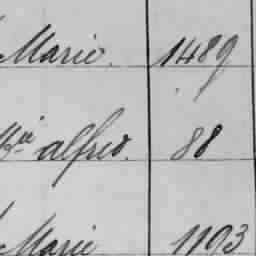 Marie. 1489
Mie alfred. 88
Marie 1193